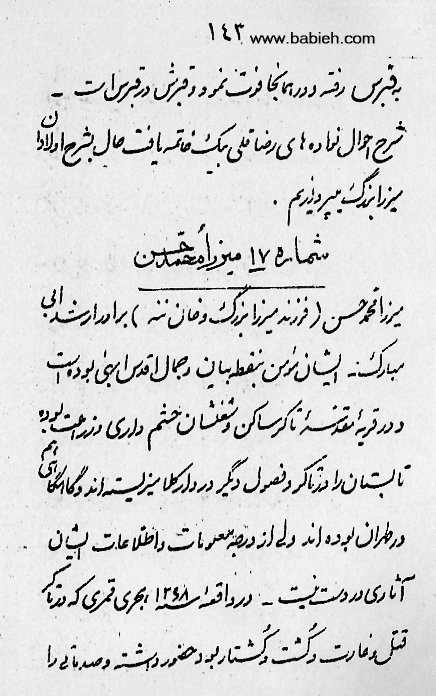 ۱۴۳ www.babieh.com
به قبرس رفته و در همانجا فوت نمود و قبرش در قبرس است -
شرح احوال نواده های رضا قلی بیک خاتمه یافت حال بشرح اولادان
میرزا بزرگ میپردازیم .
شماره ۱۷ میرزا محمد حسن
میرزا محمد حسن ( فرزند میرزا بزرگ و خان ننه ) برادر ارشد ابی
مبارک - ایشان مؤمن بنقطه بیان و جمال اقدس ابهی بوده است
و در قریهٔ مقدسهٔ تاکر ساکن و شغلشان حشم داری و زراعت بوده
تابستان را در تاکر و فصول دیگر در دارکلا میزیسته اند و گاهگاهی هم
در طهران بوده اند ولی از درجه معلومات و اطلاعات ایشان
آثاری در دست نیست - در واقعهٔ سنه ۱۲۶۸ هجری قمری که در تاکر
قتل و غارت و کشت و کشتار بود حضور داشته و صدماتی را